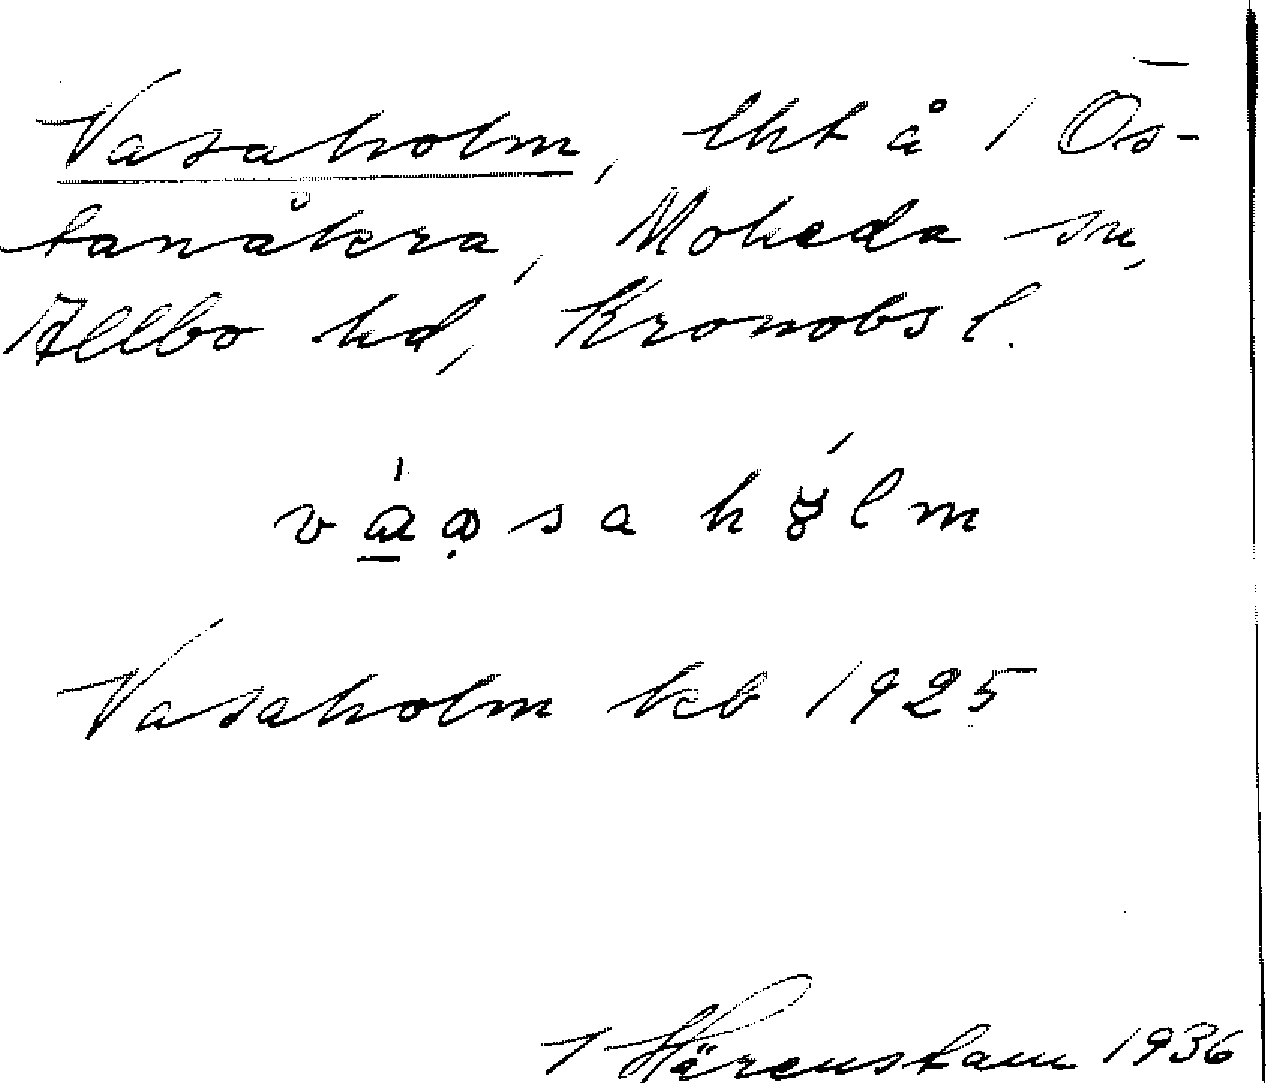 Vasaholm, lht å 1 Ös-
tanåkra, Moheda sn,
Allbo hd, Kronobs l.
Vasaholm kb 1925
1 Härenstam 1936